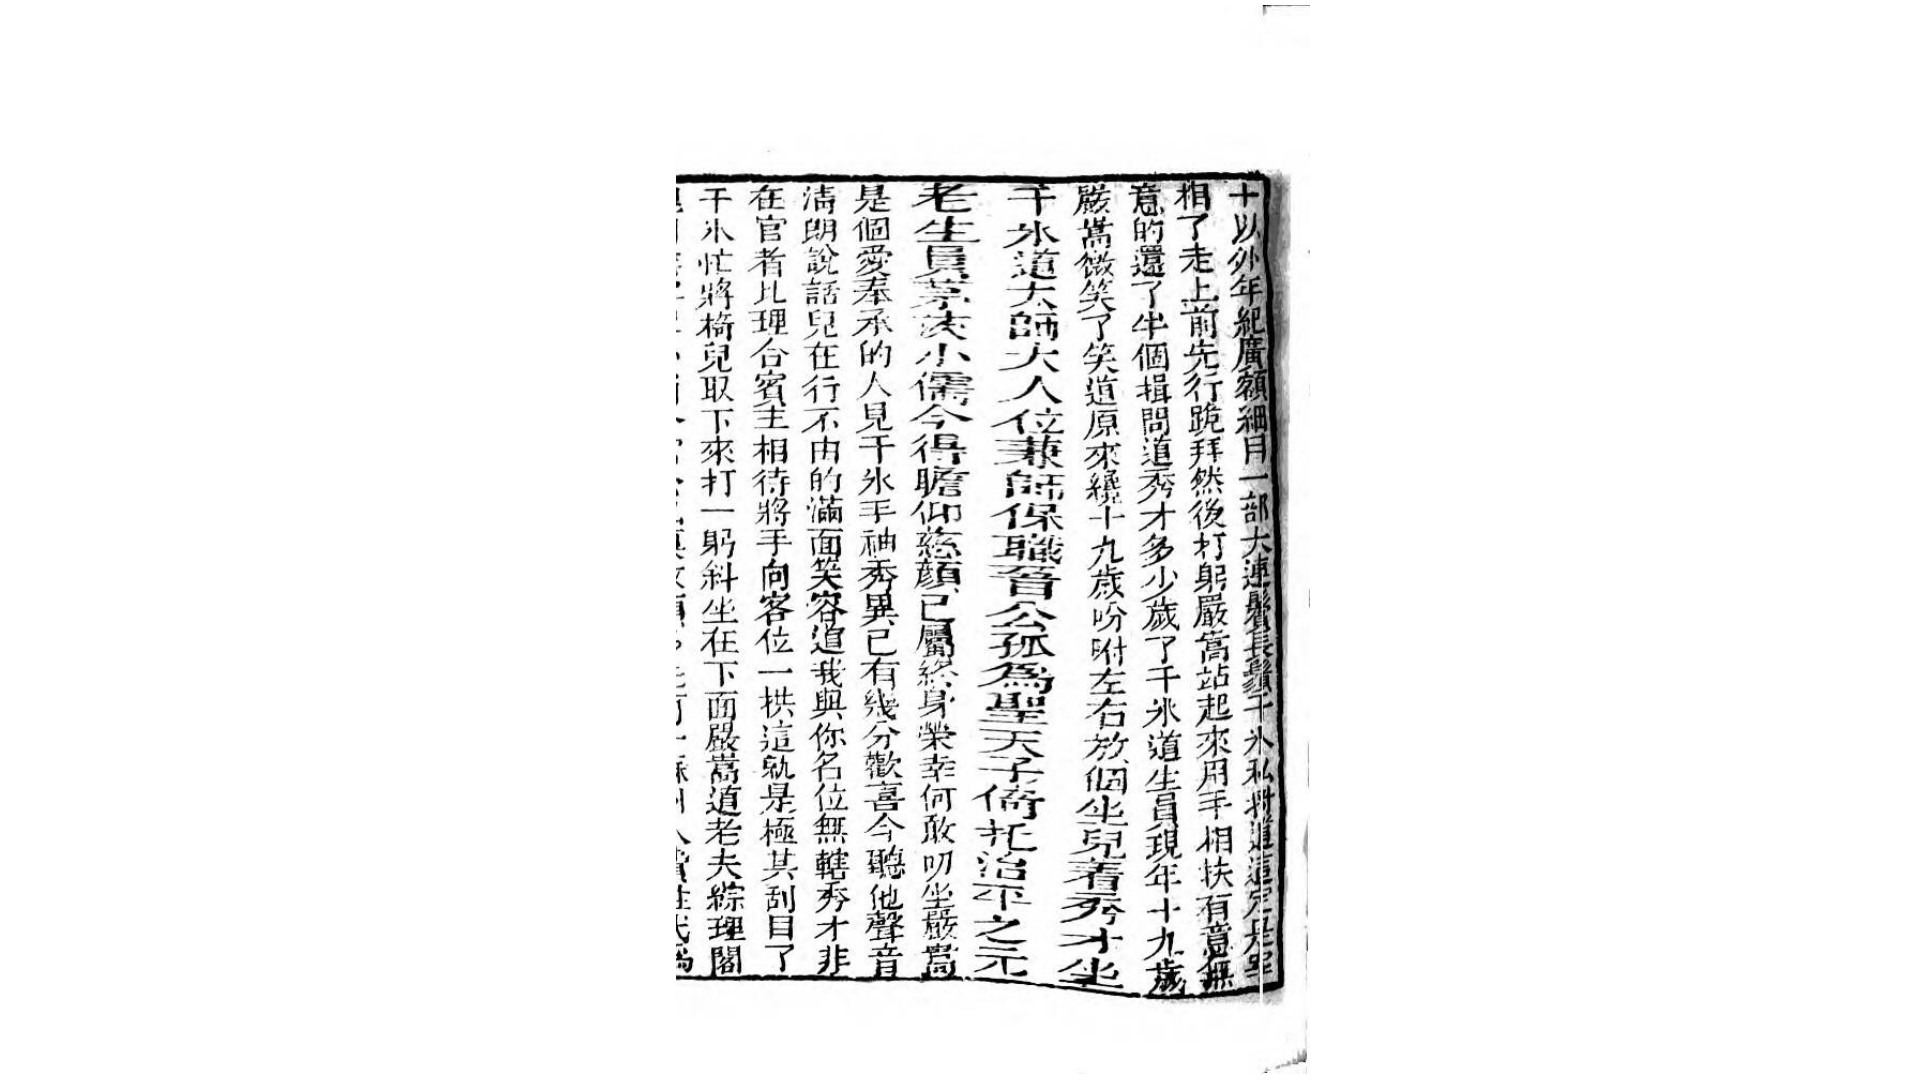 十以外年紀廣額細目一部大連鬢長鬚于氷私忖道這定是宰
相了走上前先行跪拜然後打躬嚴嵩站起來用手相扶有意無
意的還了半個揖問道秀才多少歲了于氷道生員現年十九歲
嚴嵩微笑了笑道原來纔十九歲吩咐左右放個坐兒着秀才坐
于氷道太師大人位兼師保職晉公孤為聖天子倚托治平之元
老生員茅茨小儒今得瞻仰慈顔已屬終身榮幸何敢叨坐嚴嵩
是個愛奉承的人見于氷手袖秀異已有幾分歡喜今聽他聲音
清朗說話兒在行不由的滿面笑容道我與你名位無轄秀才非
在官者比理合賓主相待將手向客位一拱這就是極其刮目了
于氷忙將椅兒取下來打一躬斜坐在下面嚴嵩道老夫綜理閣